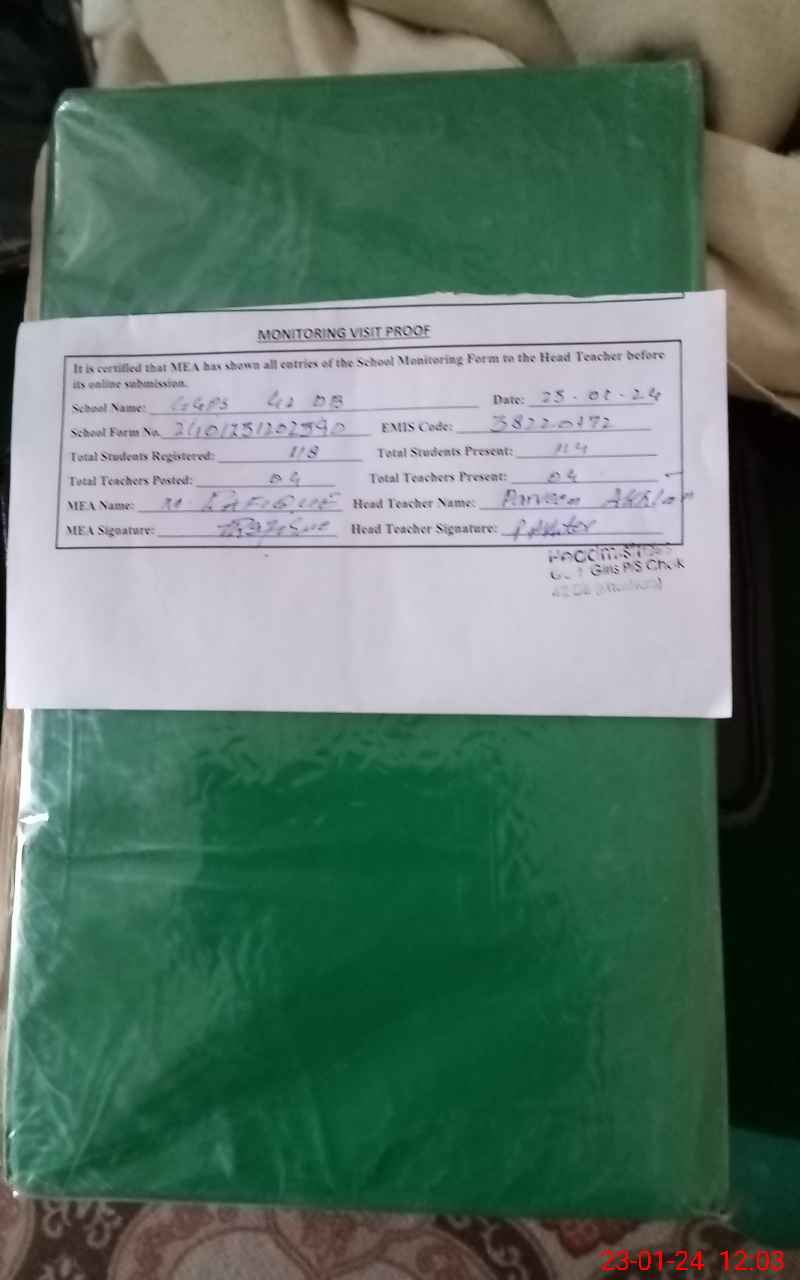 MONITORING VISIT PROOF
It is certified that MEA has shown all entries of the School Monitoring Form to the Head Teacher before
its online submission.
School Name: GGPS 42 DB Date: 23-01-24
School Form No. EMIS Code:
Total Students Registered: 118 Total Students Present: 114
Total Teachers Posted: 04 Total Teachers Present: 04
MEA Name: M. RAFIQUE Head Teacher Name: Parveen Akhtar
MEA Signature: Head Teacher Signature: P. Akhtar
Girls P/S Chak
23-01-24 12:03